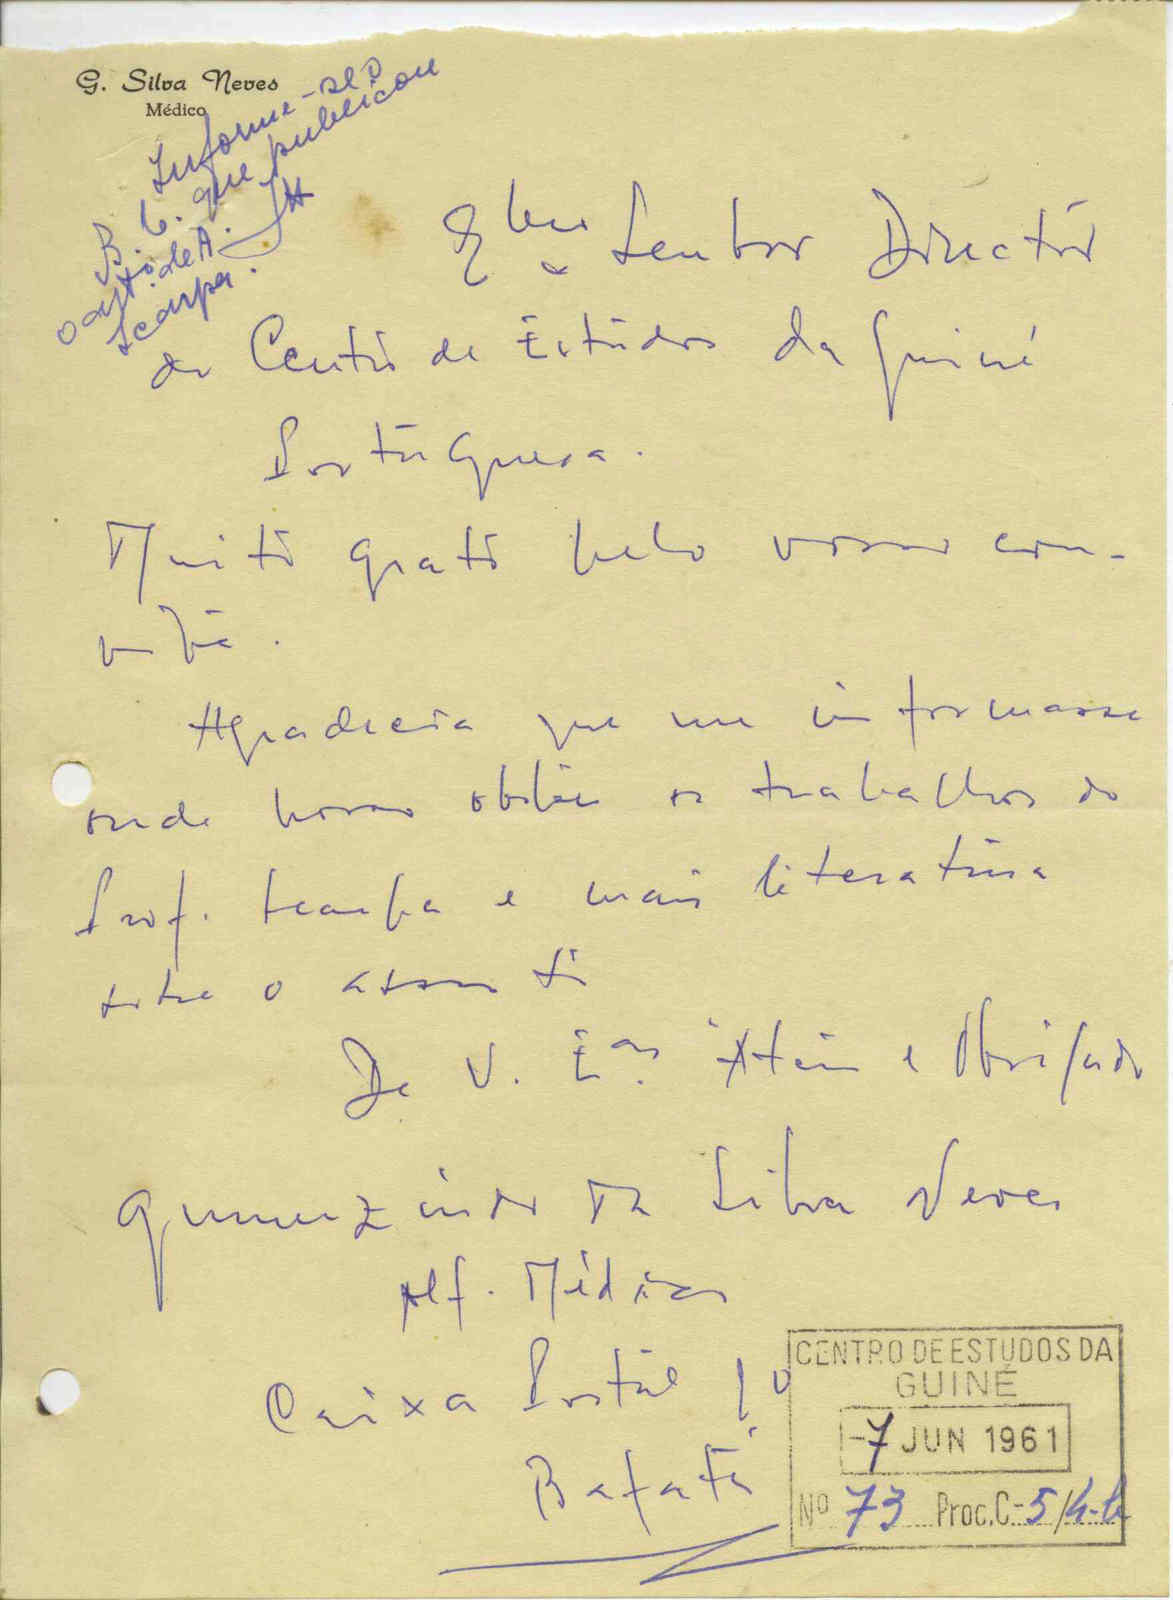 G. Silva Neves
Médico
Informe-se o
B. C. que publicou
o artº de A.
Scarpa.
Exmo Senhor Director
do Centro de Estudos da Guiné
Portuguesa.
Muito grato pelo vosso con-
vite.
Agradecia que me informasse
onde posso obter os trabalhos do
Prof. Scarpa e mais literatura
sobre o assunto
De V. Exas Atento e Obrigado
Gumerzindo da Silva Neves
Alf. Médico
Caixa Postal 10
Bafatá
CENTRO DE ESTUDOS DA
GUINÉ
-7 JUN 1961
Nº 73 Proc. C-5/4-b